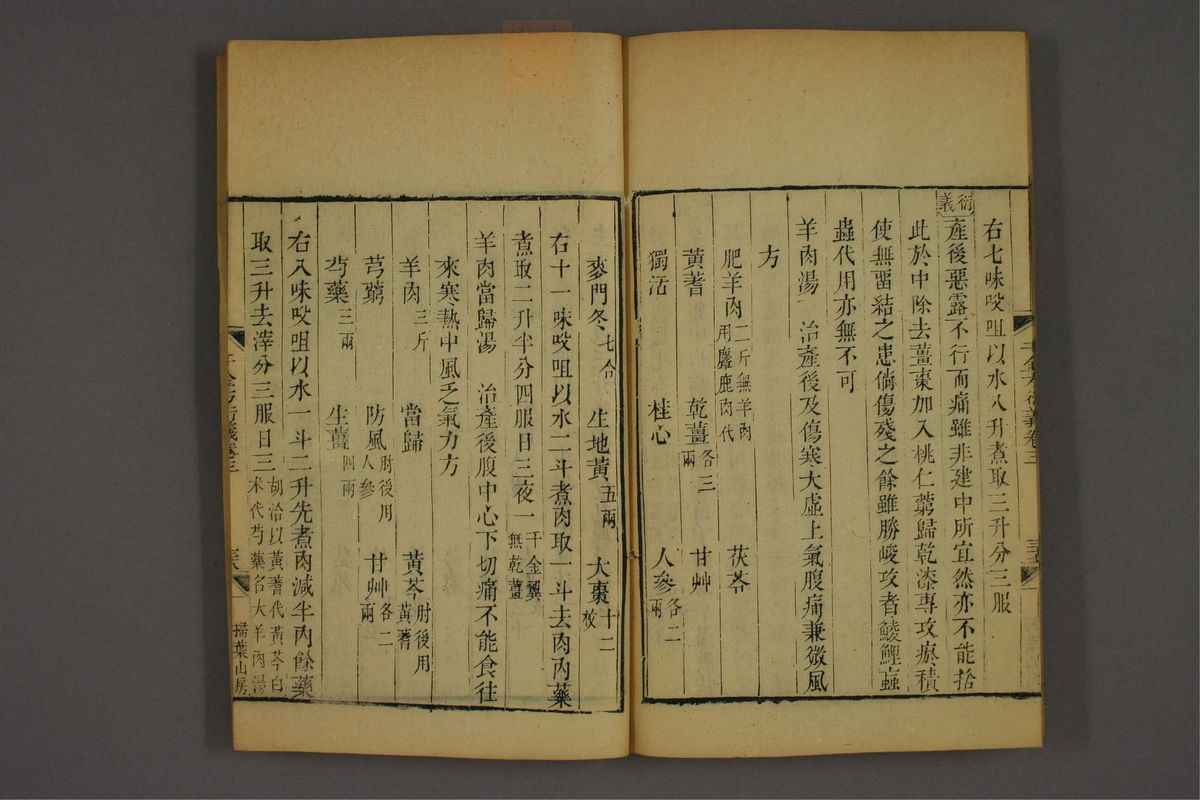 右七味㕮咀以水八升煮取三升分三服
衍義
產後惡露不行而痛雖非建中所宜然亦不能捨
此於中除去薑棗加入桃仁藭歸乾漆專攻瘀積
使無畱結之患倘傷殘之餘雖勝峻攻者鯪鯉蝱
蟲代用亦無不可
羊肉湯 治產後及傷寒大虛上氣腹痛兼微風
方
肥羊肉二斤無羊肉用麞鹿肉代 茯苓
黃蓍 乾薑各三兩 甘艸
獨活 桂心 人參各二兩
麥門冬七合 生地黃五兩 大棗十二枚
右十一味㕮咀以水二斗煮肉取一斗去肉內藥
煮取二升半分四服日三夜一千金翼無乾薑
羊肉當歸湯 治產後腹中心下切痛不能食往
來寒熱中風乏氣力方
羊肉三斤 當歸 黃芩肘後用黃蓍
芎藭 防風肘後用人參 甘艸各二兩
芍藥三兩 生薑四兩
右八味㕮咀以水一斗二升先煮肉減半內餘藥
取三升去滓分三服日三胡洽以黃蓍代黃芩白朮代芍藥名大羊肉湯
千金方衍義卷三
掃葉山房